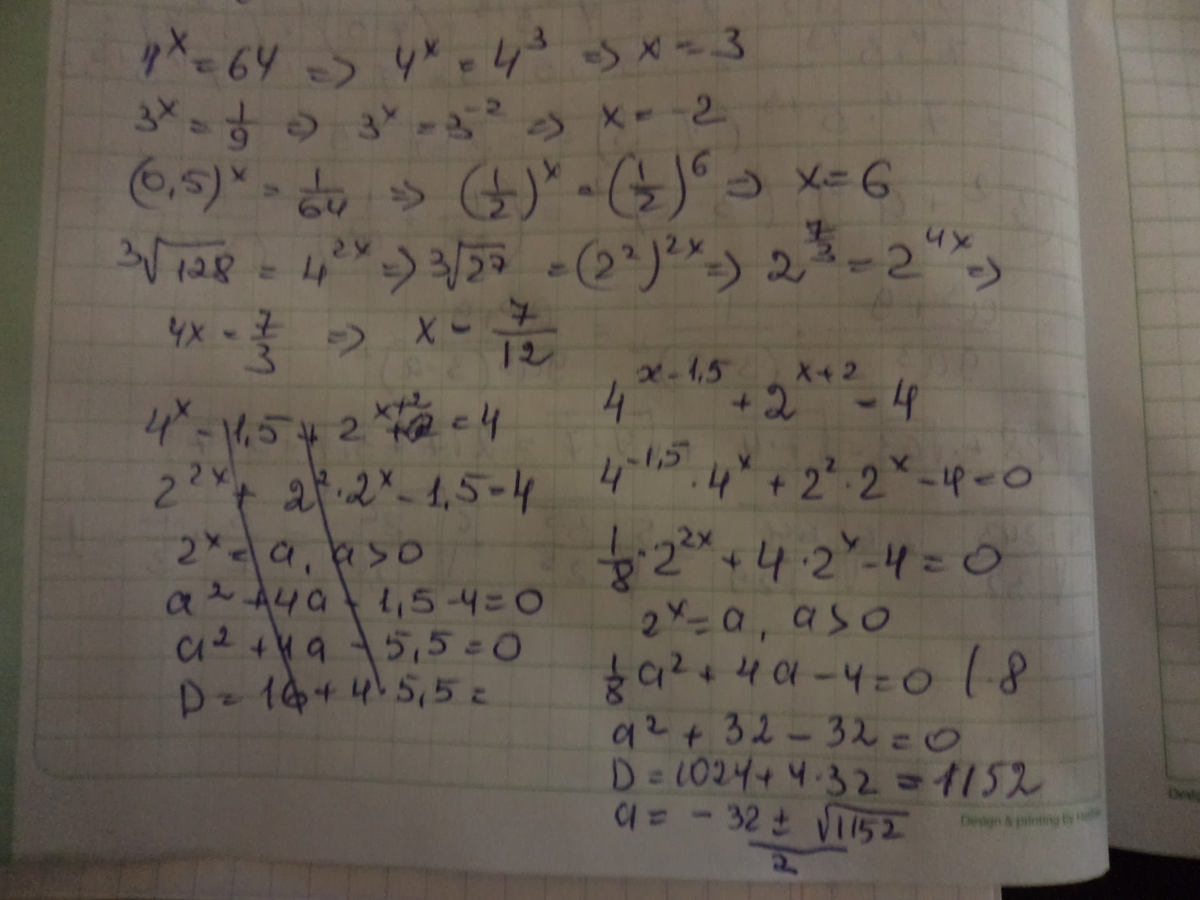 4^x = 64 => 4^x = 4^3 => x = 3
3^x = 1/9 => 3^x = 3^-2 => x = -2
(0,5)^x = 1/64 => (1/2)^x = (1/2)^6 => x = 6
3√128 = 4^2x => 3√2^7 = (2^2)^2x => 2^7/3 = 2^4x =>
4x = 7/3 => x = 7/12
4^x - 1,5 + 2^x+2 = 4
2^2x + 2^2·2^x - 1,5 = 4
2^x = a, a > 0
a^2 + 4a - 1,5 - 4 = 0
a^2 + 4a - 5,5 = 0
D = 16 + 4·5,5 =
4^x-1,5 + 2^x+2 = 4
4^-1,5 · 4^x + 2^2·2^x - 4 = 0
1/8·2^2x + 4·2^x - 4 = 0
2^x = a, a > 0
1/8 a^2 + 4a - 4 = 0 /·8
a^2 + 32 - 32 = 0
D = 1024 + 4·32 = 1152
a = -32 ± √1152 / 2
Design & printing by